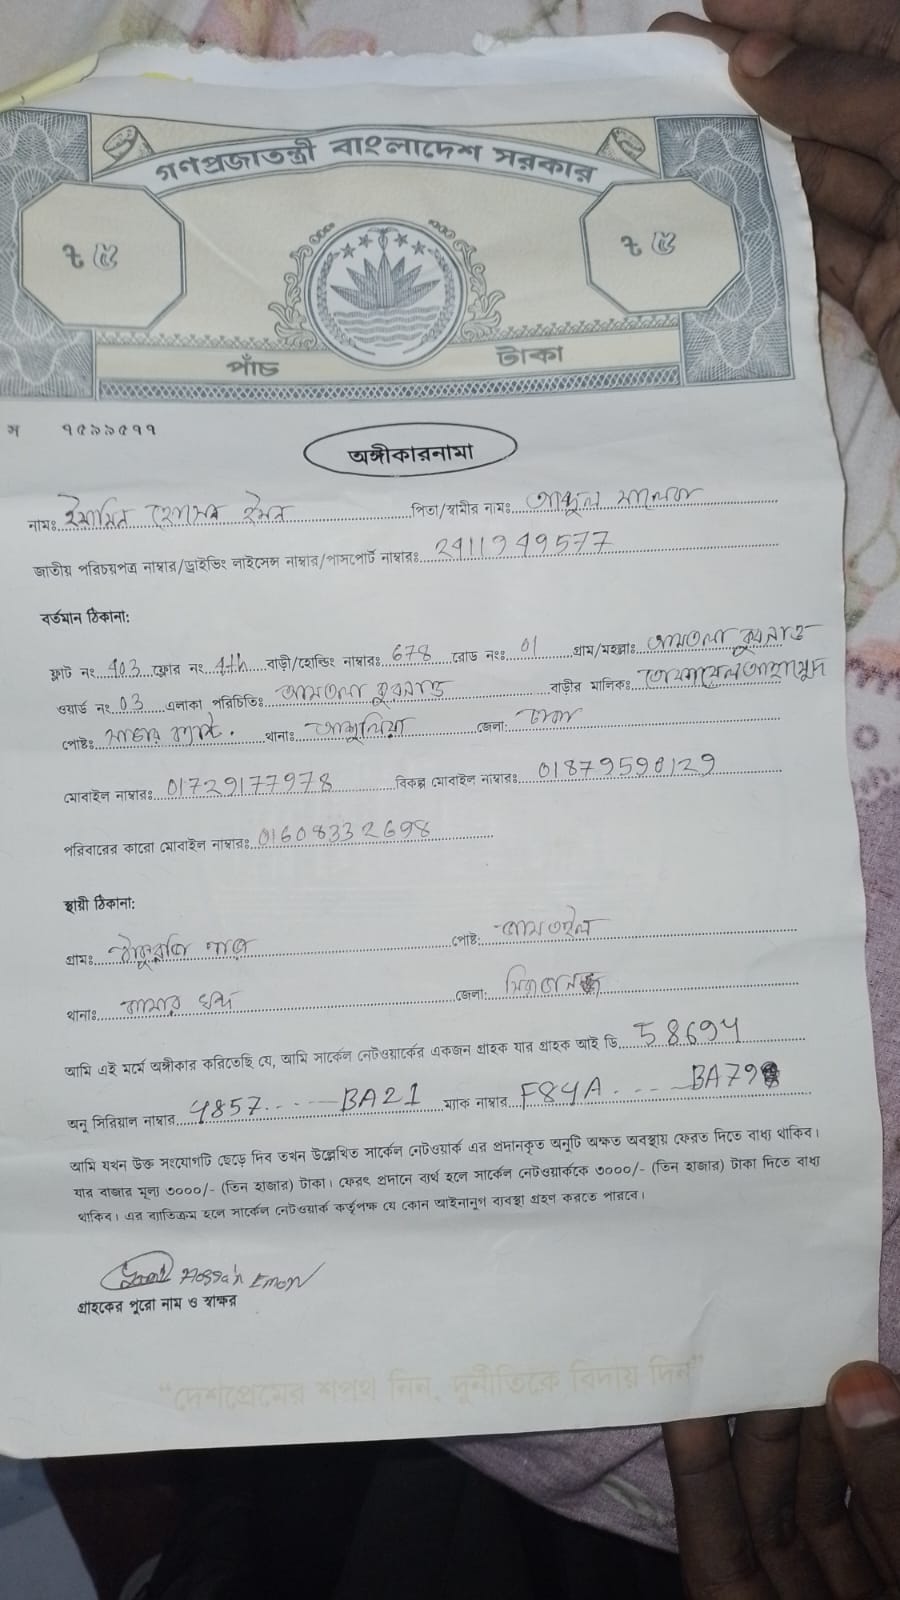 গণপ্রজাতন্ত্রী বাংলাদেশ সরকার
৳ ৫ ৳ ৫
পাঁচ টাকা
অঙ্গীকারনামা
নামঃ ইয়ামিন হোসেন ইমন পিতা/স্বামীর নামঃ
জাতীয় পরিচয়পত্র নাম্বার/ড্রাইভিং লাইসেন্স নাম্বার/পাসপোর্ট নাম্বারঃ 2411949577
বর্তমান ঠিকানা:
ফ্লাট নং 403 ফ্লোর নং 4th বাড়ী/হোল্ডিং নাম্বারঃ 678 রোড নংঃ 01 গ্রাম/মহল্লাঃ আমতলা
ওয়ার্ড নং 03 এলাকা পরিচিতিঃ আমতলা বাড়ীর মালিকঃ
পোষ্টঃ থানাঃ আশুলিয়া জেলা: ঢাকা
মোবাইল নাম্বারঃ 01729177978 বিকল্প মোবাইল নাম্বারঃ 01879590129
পরিবারের কারো মোবাইল নাম্বারঃ 01608332698
স্থায়ী ঠিকানা:
গ্রামঃ পোষ্ট: জামতৈল
থানাঃ কামার খন্দ জেলা: সিরাজগঞ্জ
আমি এই মর্মে অঙ্গীকার করিতেছি যে, আমি সার্কেল নেটওয়ার্কের একজন গ্রাহক যার গ্রাহক আই ডি 58694
অনু সিরিয়াল নাম্বার 4857 BA21 ম্যাক নাম্বার F84A BA79
আমি যখন উক্ত সংযোগটি ছেড়ে দিব তখন উল্লেখিত সার্কেল নেটওয়ার্ক এর প্রদানকৃত অনুটি অক্ষত অবস্থায় ফেরত দিতে বাধ্য থাকিব।
যার বাজার মূল্য ৩০০০/- (তিন হাজার) টাকা। ফেরৎ প্রদানে ব্যর্থ হলে সার্কেল নেটওয়ার্ককে ৩০০০/- (তিন হাজার) টাকা দিতে বাধ্য
থাকিব। এর ব্যতিক্রম হলে সার্কেল নেটওয়ার্ক কর্তৃপক্ষ যে কোন আইনানুগ ব্যবস্থা গ্রহণ করতে পারবে।
Hossain Emon
গ্রাহকের পুরো নাম ও স্বাক্ষর
"দেশপ্রেমের শপথ নিন, দুর্নীতিকে বিদায় দিন"